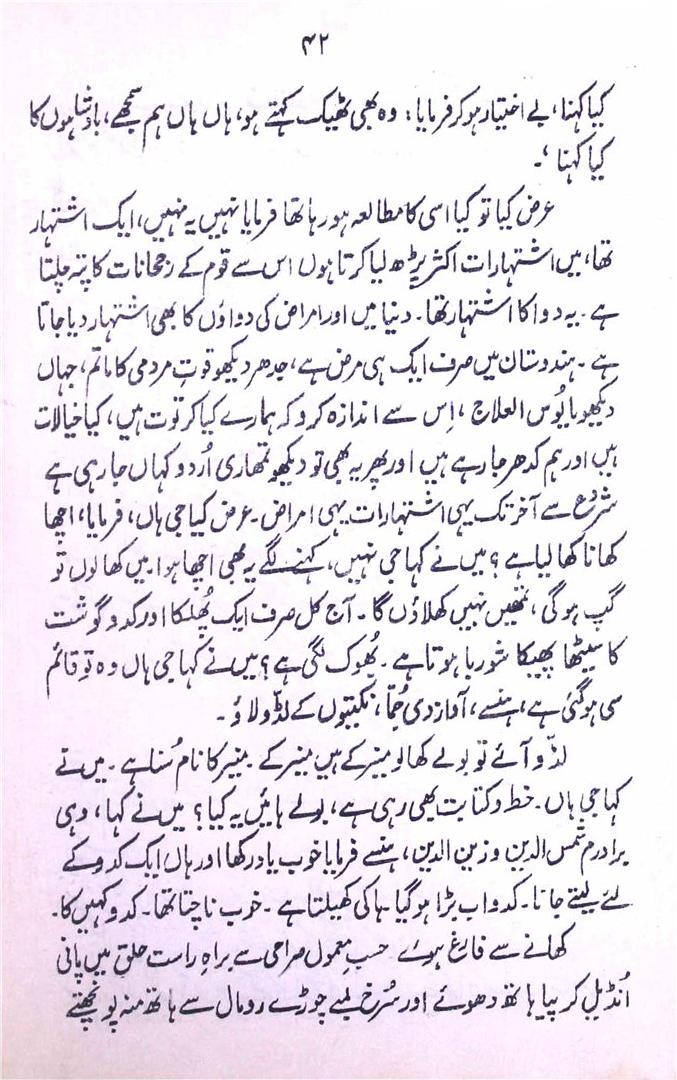 ۴۲
کیا کہنا، بے اختیار ہوکر فرمایا: وہ بھی ٹھیک کہتے ہو، ہاں ہاں ہم سمجھے، بادشاہوں کا
کیا کہنا'۔
عرض کیا تو کیا اسی کا مطالعہ ہو رہا تھا فرمایا نہیں یہ نہیں، ایک اشتہار
تھا، میں اشتہارات اکثر پڑھ لیا کرتا ہوں اس سے قوم کے رجحانات کا پتہ چلتا
ہے۔ یہ دوا کا اشتہار تھا۔ دنیا میں اور امراض کی دواؤں کا بھی اشتہار دیا جاتا
ہے۔ ہندوستان میں صرف ایک ہی مرض ہے، جدھر دیکھو قوتِ مردمی کا ماتم، جہاں
دیکھو مایُوس العلاج، اِس سے اندازہ کرو کہ ہمارے کیا کرتوت ہیں، کیا خیالات
ہیں اور ہم کدھر جا رہے ہیں اور پھر یہ بھی تو دیکھو تمھاری اُردو کہاں جا رہی ہے
شروع سے آخر تک یہی اشتہارات یہی امراض۔ عرض کیا جی ہاں، فرمایا، اچھا
کھانا کھا لیا ہے؟ میں نے کہا جی نہیں، کہنے لگے یہ بھی اچھا ہوا۔ میں کھا لوں تو
گپ ہوگی، تمھیں نہیں کھلاؤں گا۔ آج کل صرف ایک پُھلکا اور کدو گوشت
کا سیٹھا پھیکا شوربا ہوتا ہے۔ بُھوک لگی ہے؟ میں نے کہا جی ہاں وہ تو قائم
سی ہوگئی ہے، ہنسے، آواز دی جُمّا، نکیتیوں کے لڈّو لاؤ۔
لڈّو آئے تو بولے کھا لو منیر کے ہیں منیر کے۔ منیر کا نام سُنا ہے۔ میں نے
کہا جی ہاں۔ خط و کتابت بھی رہی ہے، بولے ہائیں یہ کیا؟ میں نے کہا، وہی
برادرم شمس الدین و زین الدین، ہنسے فرمایا خوب یاد رکھا اور ہاں ایک کدو کے
لئے لیتے جانا۔ کدو اب بڑا ہوگیا۔ ہاکی کھیلتا ہے۔ خوب ناچتا تھا۔ کدو کہیں کا۔
کھانے سے فارغ ہوئے حسبِ معمول صراحی سے براہِ راست حلق میں پانی
اُنڈیل کر پیا ہاتھ دھوئے اور سُرخ لمبے چوڑے رومال سے ہاتھ منہ پونچھتے